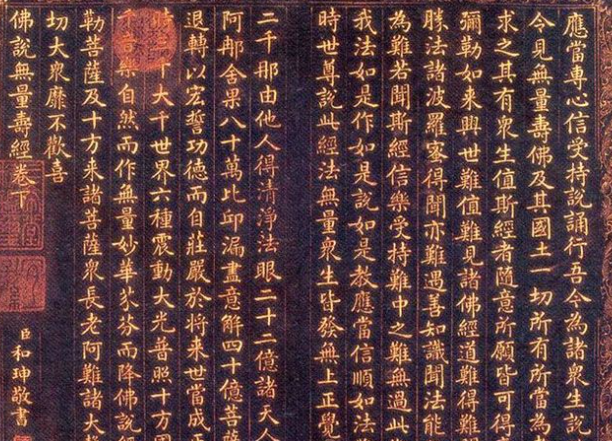 應當專心信受持說誦行吾今為諸眾生說
今見無量壽佛及其國土一切所有所當為
求之其有眾生值斯經者隨意所願皆可得
彌勒如來興世難值難見諸佛經道難得難
勝法諸波羅蜜得聞亦難遇善知識聞法能
為難若聞斯經信樂受持難中之難無過此
我法如是作如是說如是教應當信順如法
時世尊說此經法無量眾生皆發無上正覺
二千那由他人得清淨法眼二十二億諸天
阿那舍果八十萬比邱漏盡意解四十億菩
退轉以宏誓功德而自莊嚴於將來世當成
時千大千世界六種震動大光普照十方
千音樂自然而作無量妙華芬而降佛說
勒菩薩及十方來諸菩薩眾長老阿難諸大
切大眾靡不歡喜
佛說無量壽經卷下
臣和珅敬書